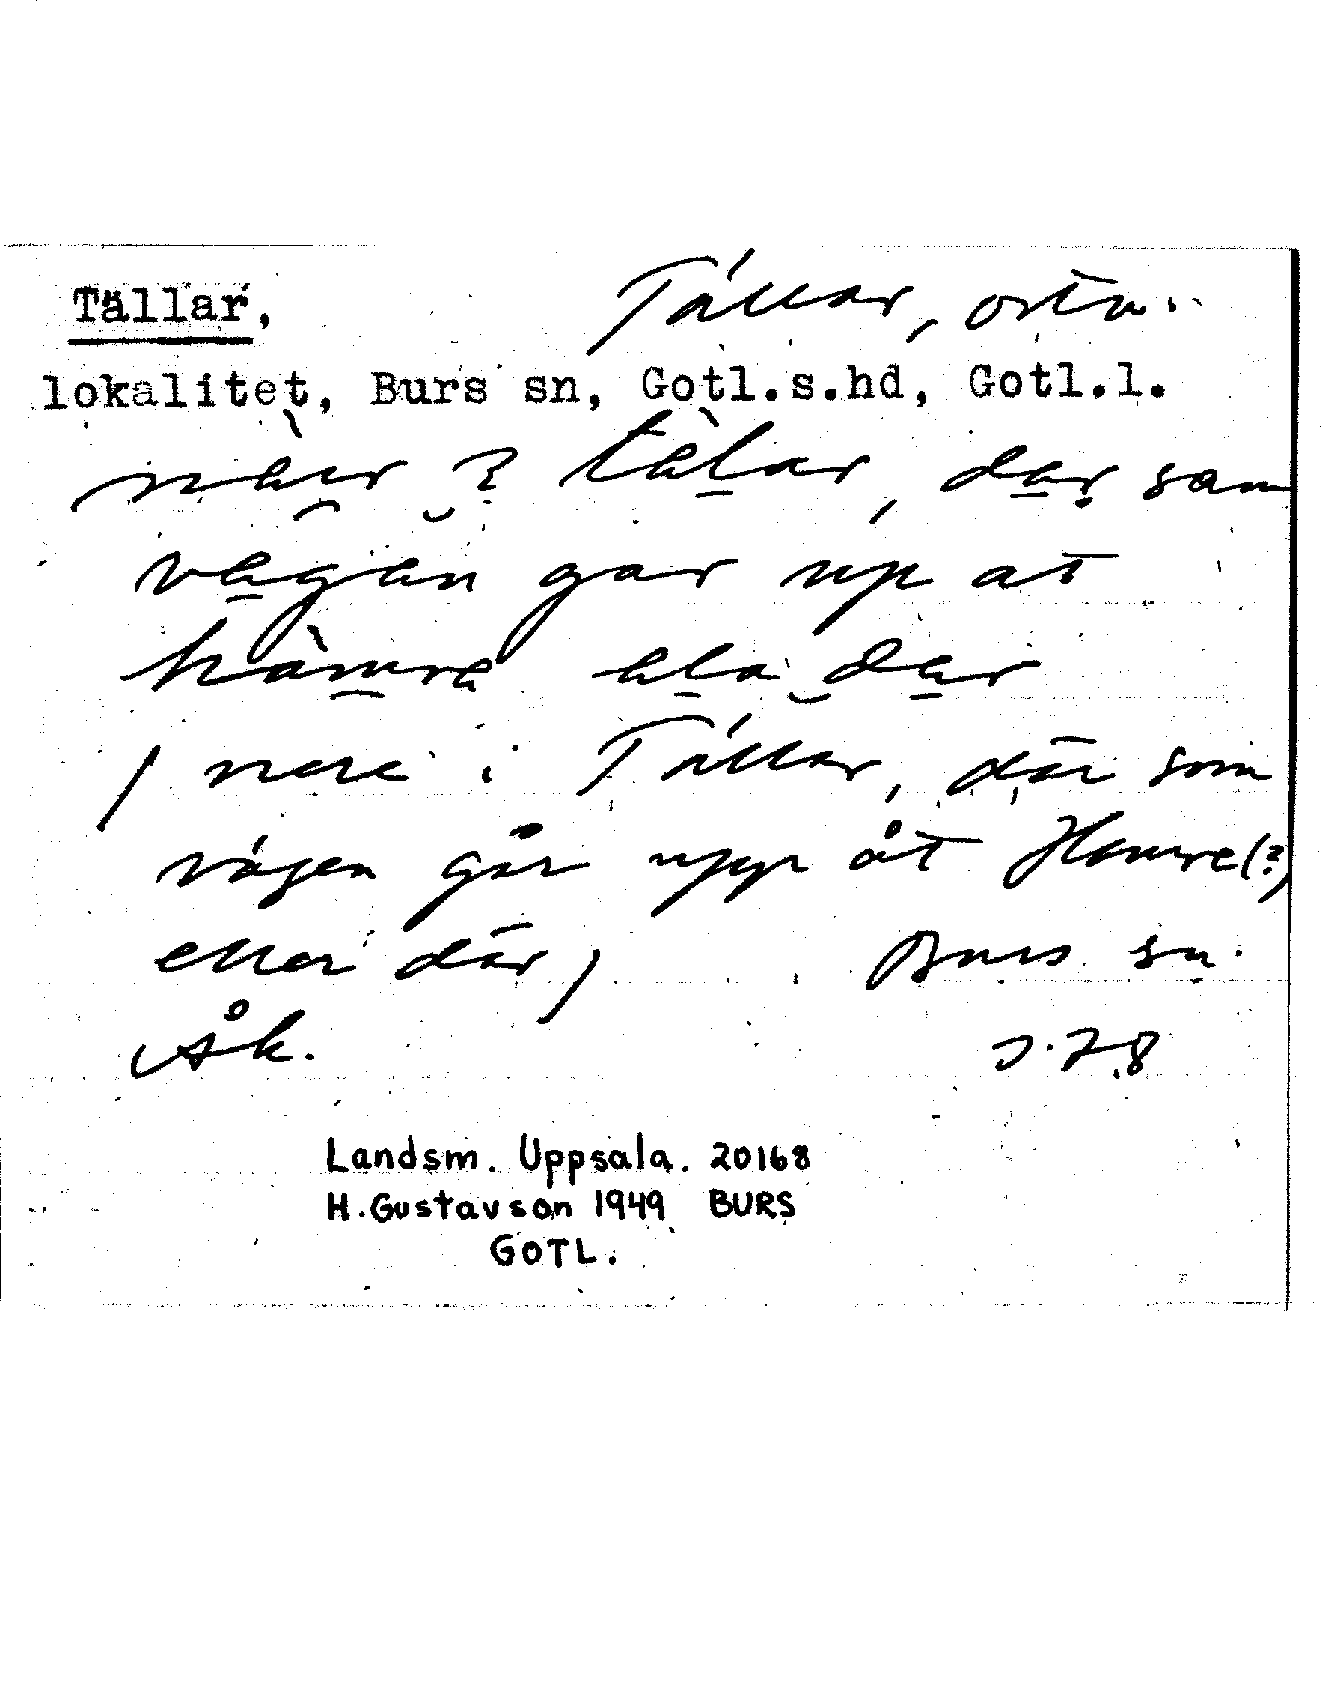 Tällar, Tällar, ortn.
lokalitet, Burs sn, Gotl.s.hd, Gotl.l.
tälar, där sam
vägen gar up at
hamre ela där
/ nere i Tällar, där som
vägen går upp åt Hamre(?)
eller där /   Burs sn.
Åk.   s. 78
Landsm. Uppsala. 20168
H. Gustavson 1949 BURS
GOTL.